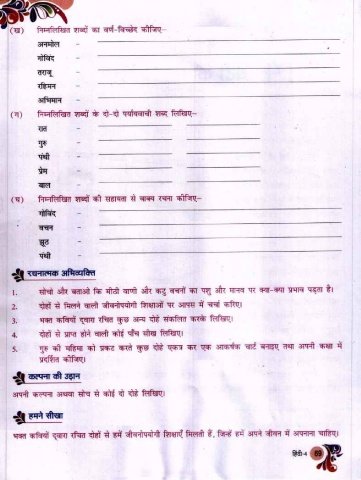 (ख) निम्नलिखित शब्दों का वर्ण-विच्छेद कीजिए–
अनमोल –
गोविंद –
तराजू –
रहिमन –
अभिमान –
(ग) निम्नलिखित शब्दों के दो-दो पर्यायवाची शब्द लिखिए–
रात –
गुरु –
पंथी –
प्रेम –
बाल –
(घ) निम्नलिखित शब्दों की सहायता से वाक्य रचना कीजिए–
गोविंद –
वचन –
झूठ –
पंथी –
रचनात्मक अभिव्यक्ति
1. सोचो और बताओ कि मीठी वाणी और कटु वचनों का पशु और मानव पर क्या-क्या प्रभाव पड़ता है।
2. दोहों से मिलने वाली जीवनोपयोगी शिक्षाओं पर आपस में चर्चा करिए।
3. भक्त कवियों द्वारा रचित कुछ अन्य दोहे संकलित करके लिखिए।
4. दोहों से प्राप्त होने वाली कोई पाँच सीख लिखिए।
5. गुरु की महिमा को प्रकट करते कुछ दोहे एकत्र कर एक आकर्षक चार्ट बनाइए तथा अपनी कक्षा में
प्रदर्शित कीजिए।
कल्पना की उड़ान
अपनी कल्पना अथवा सोच से कोई दो दोहे लिखिए।
हमने सीखा
भक्त कवियों द्वारा रचित दोहों से हमें जीवनोपयोगी शिक्षाएँ मिलती हैं, जिन्हें हमें अपने जीवन में अपनाना चाहिए।
हिंदी-4 69